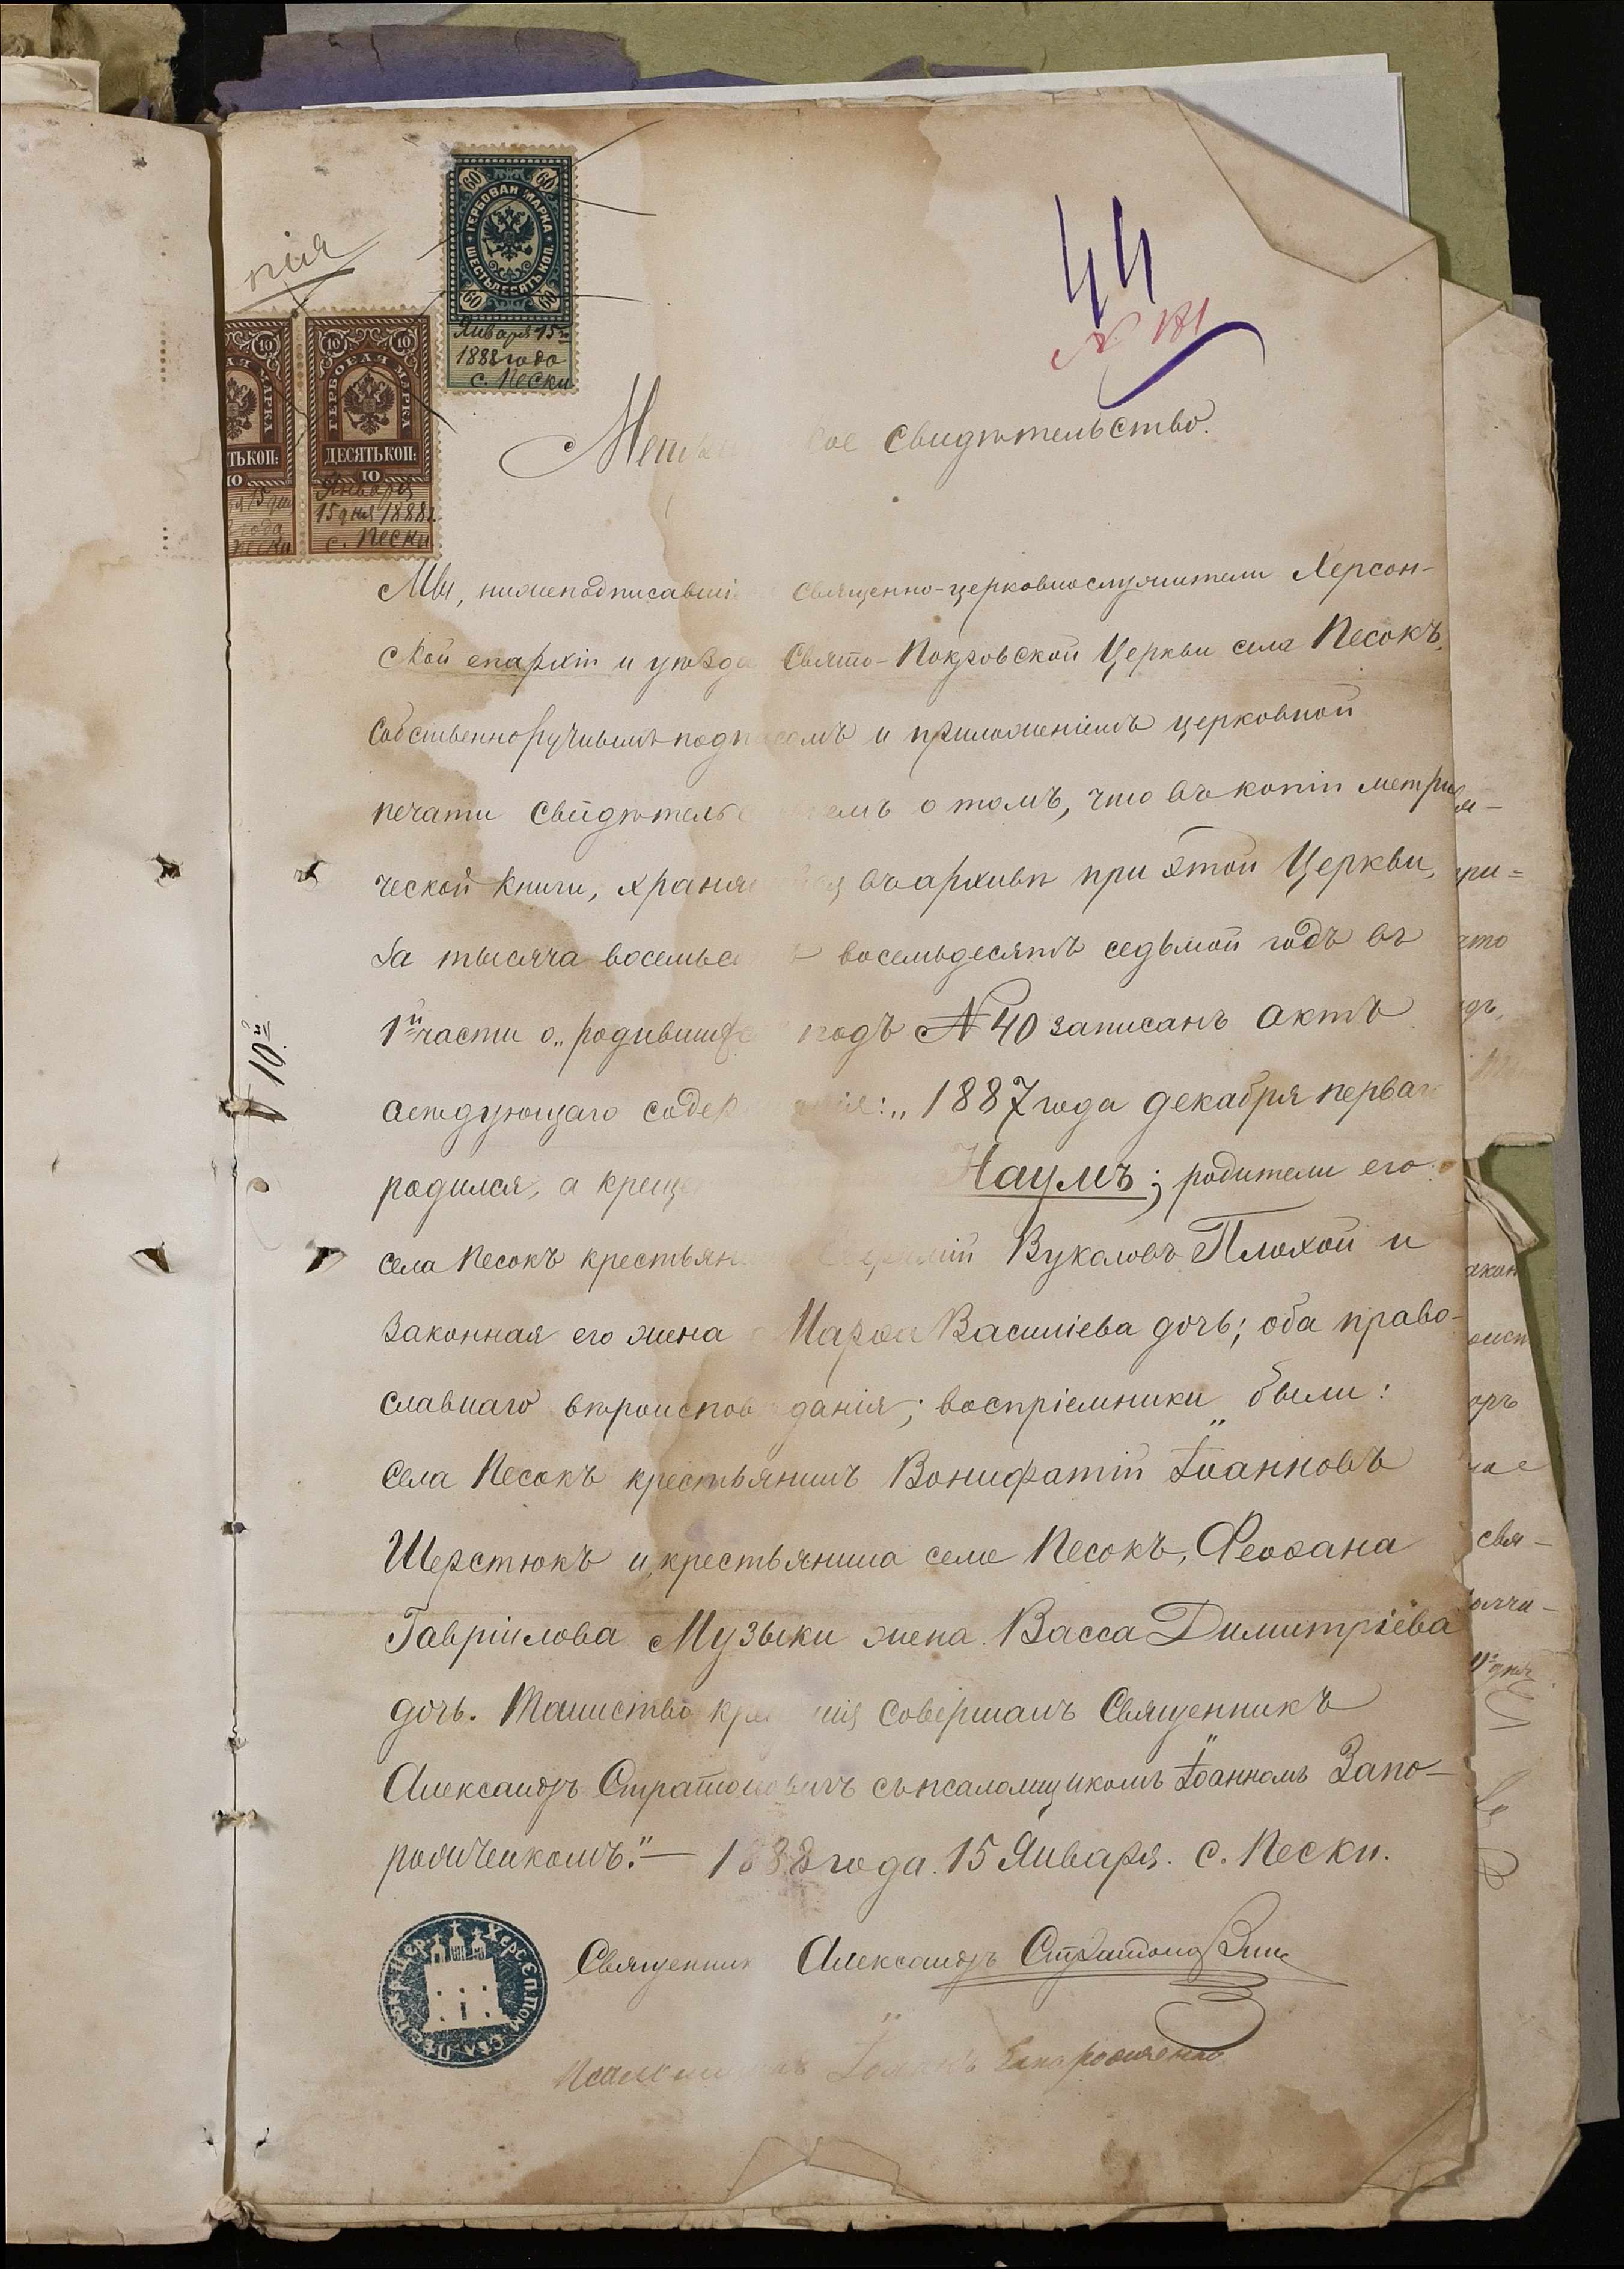 60 60
ГЕРБОВАЯ МАРКА
ШЕСТЬДЕСЯТЪ КОП.
60 60
Января 15го
1888 года
с. Пески
пія
44
10 10
ГЕРБОВАЯ МАРКА
ТЬ КОП: ДЕСЯТЬ КОП:
10 10
Января
15 дня 1888 г.
с. Пески
Мет кое свидѣтельство.
Мы, нижеподписавшіе священно-церковнослужители Херсон-
ской епархіи и уѣзда Свято-Покровской Церкви села Песокъ,
собственноручнымъ подписомъ и приложеніемъ церковной
печати свидѣтельс емъ о томъ, что въ копіи метри-
ческой книги, храня ся въ архивѣ при этой Церкви,
за тысяча восемьсо ъ восемьдесятъ седьмой годъ въ
1й части о „родившихся подъ № 40 записанъ актъ
слѣдующаго содержанія: „1887 года декабря перваго
родился, а креще Наумъ; родители его:
села Песокъ крестьян Вукаловъ Плохой и
законная его жена Марѳа Василіева дочь; оба право-
славнаго вѣроисповѣданія; воспріемники были:
села Песокъ крестьянинъ Вонифатій Іоанновъ
Шерстюкъ и крестьянина села Песокъ, Феофана
Гавріилова Музыки жена Васса Димитріева
дочь. Таинство крещенія совершалъ Священникъ
Александръ Стратоновичъ съ псаломщикомъ Іоанномъ Запо-
рожченкомъ."— 1888 года 15 Января. с. Пески.
Священник Александръ Стратоновичъ
Псаломщикъ Іоаннъ Запорожченко